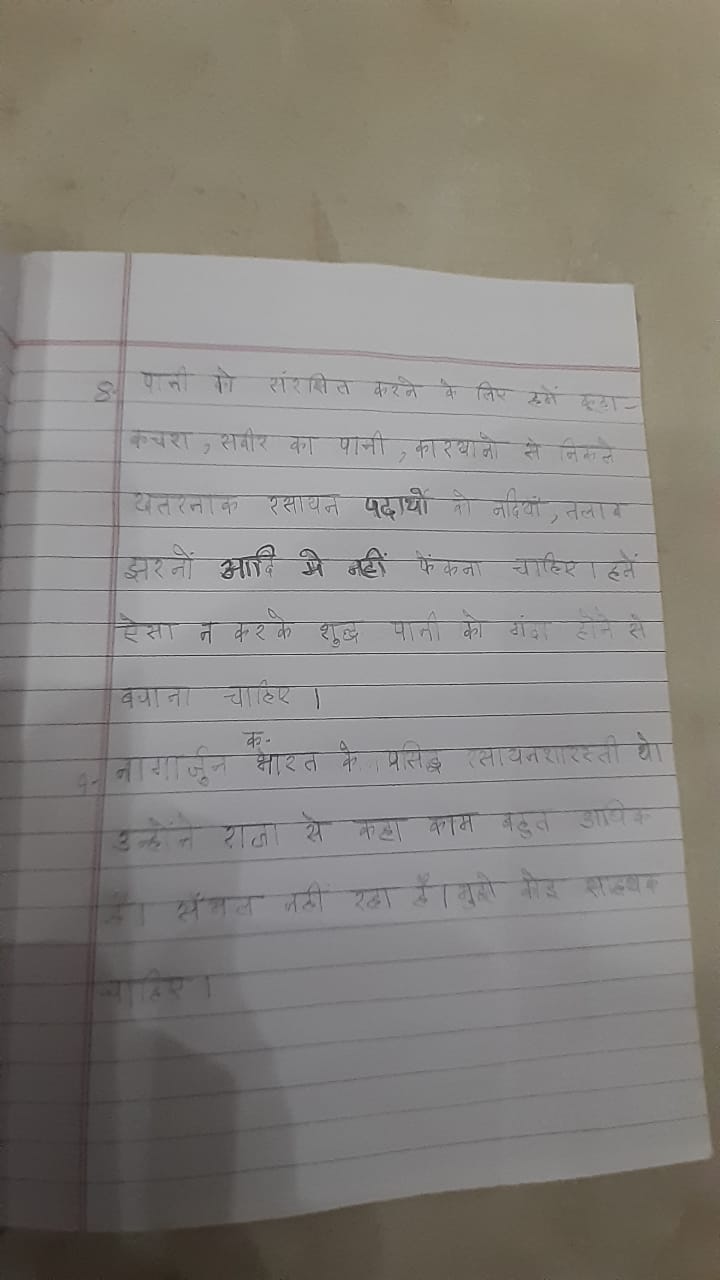 8- पानी को संरक्षित करने के लिए हमें कूड़ा-
कचरा, सवीर का पानी, कारखानो से निकले
खतरनाक रसायन पदार्थो को नदियां, तलाब
झरनों आदि मे नहीं फेंकना चाहिए। हमें
ऐसा न करके शुद्ध पानी को गंदा होने से
बचाना चाहिए।
क-
9- नागार्जुन भारत के प्रसिद्ध रसायनशास्त्री थे।
उन्होंने राजा से कहा काम बहुत अधिक
है। संभल नहीं रहा है। मुझे कोई सहायक
चाहिए।